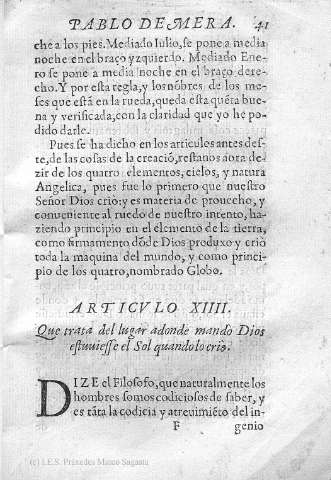 PABLO DE MERA. 41
che a los pies. Mediado Iulio, se pone a media
noche en el braço yzquierdo. Mediado Ene-
ro se pone a media noche en el braço dere-
cho. Y por esta regla, y los nõbres de los me-
ses que estã en la rueda, queda esta quẽta bue-
na y verificada, con la claridad que yo he po-
dido darle.
Pues se ha dicho en los articulos antes des-
te, de las cosas de la creaciõ, restanos aora de-
zir de los quatro elementos, cielos, y natura
Angelica, pues fue lo primero que nuestro
Señor Dios crio: y es materia de prouecho, y
conueniente al ruedo de nuestro intento, ha-
ziendo principio en el elemento de la tierra,
como firmamento dõde Dios produxo y crió
toda la maquina del mundo, y como princi-
pio de los quatro, nombrado Globo.
ARTICVLO XIIII.
Que trata del lugar adonde mando Dios
estuuiesse el Sol quando lo crio.
DIZE el Filosofo, que naturalmente los
hombres somos codiciosos de saber, y
es tãta la codicia y atreuimiẽto del in-
F genio
(c) I.E.S. Práxedes Mateo Sagasta